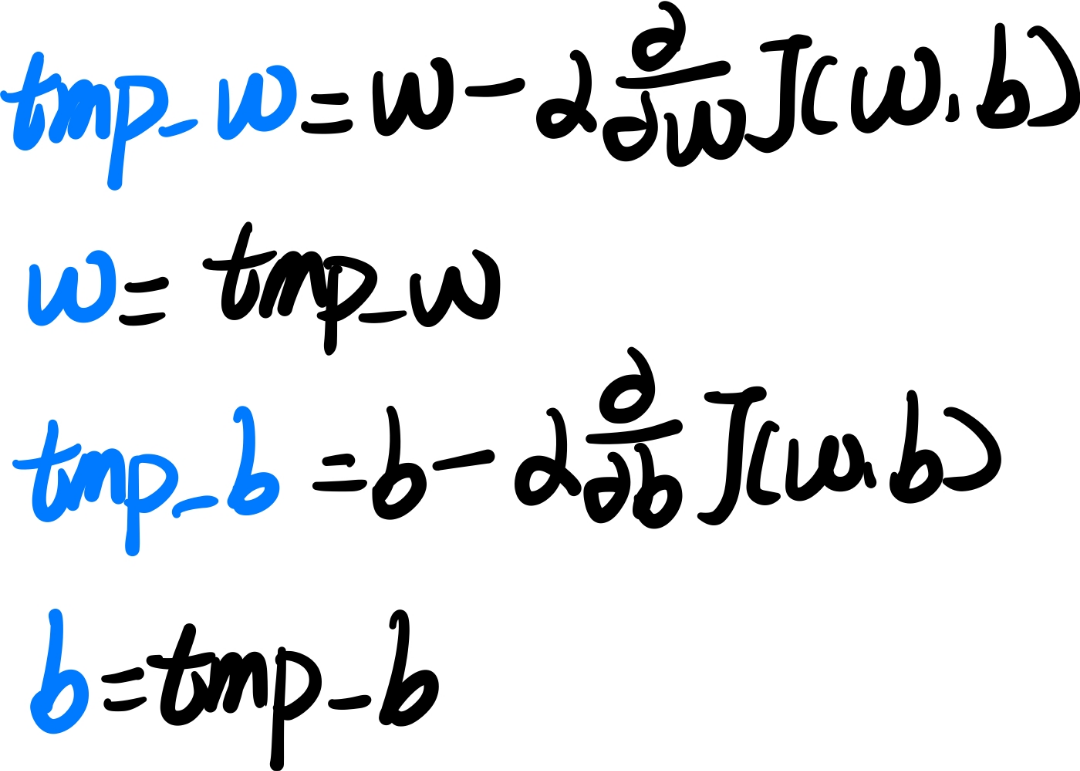 tmp_w = w - α ∂/∂w J(w, b)
w = tmp_w
tmp_b = b - α ∂/∂b J(w, b)
b = tmp_b